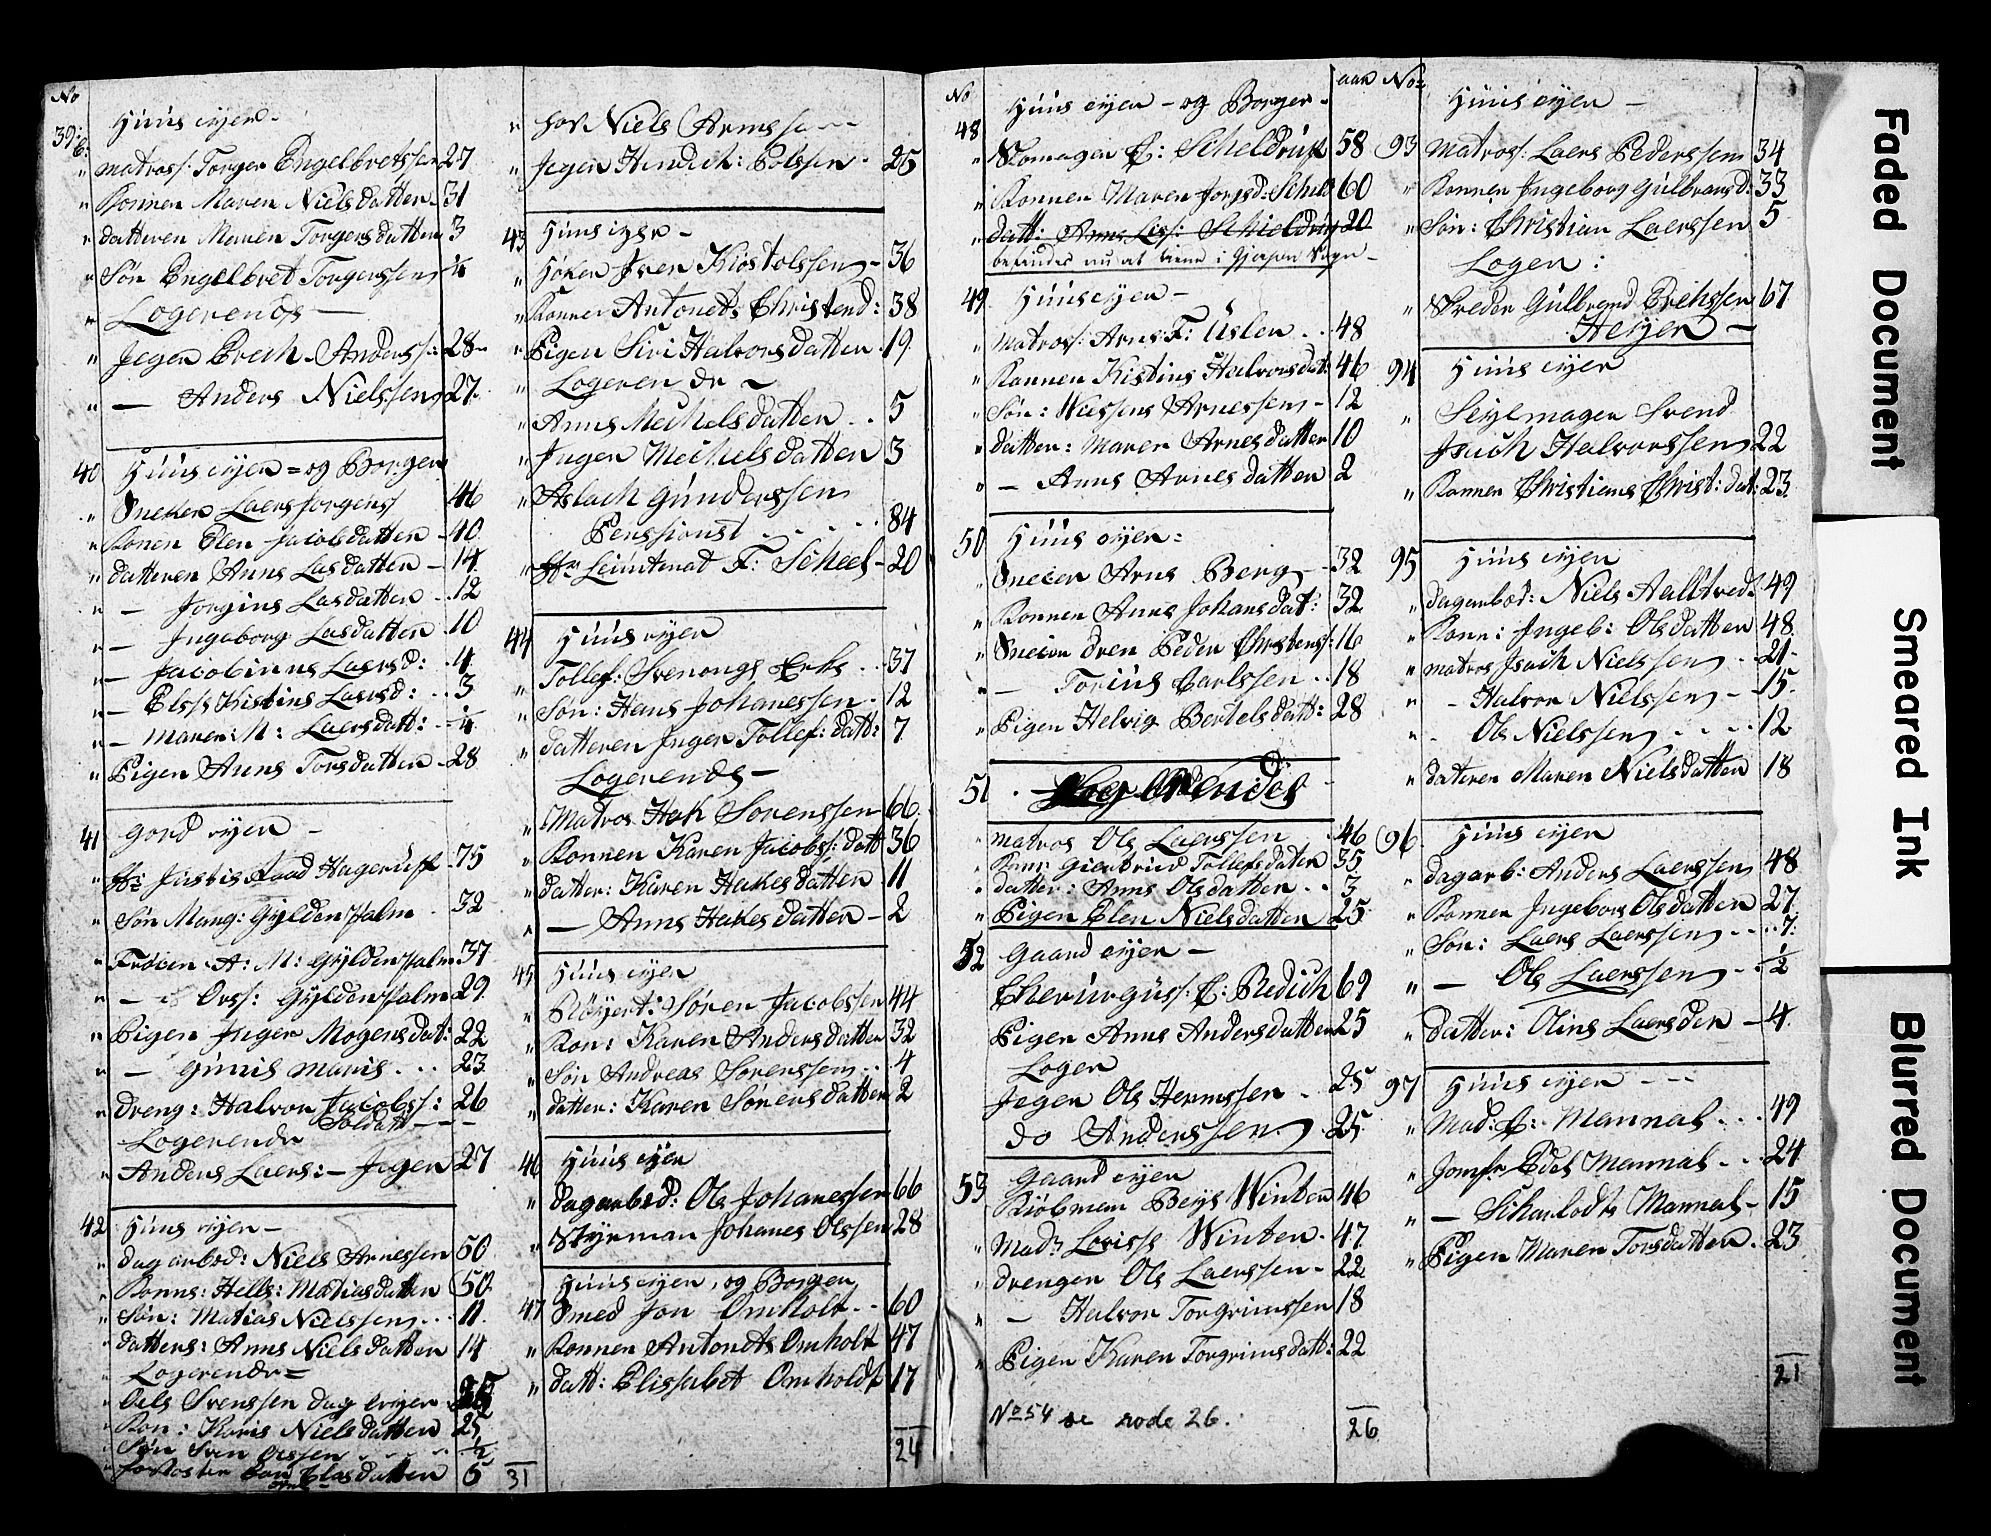 No
39: b: Huus eyer -
" matros: Torger Engelbretssen 27
" Konnen Maren Nielsdatter 31
" datteren Maren Torgersdatter 3
" Søn Engelbret Torgerssen 1/4
" Logerende —
" Jeger Erich Anderss: 28
" — Anders Nielssen 27
40 Huus eyer = og Borger
" Sneker Laers Jorgens 46
" Konen Elen Jacobsdatter 40
" datteren Anne Lasdatter 14
" — Jorgine Lasdatter 12
" — Ingeborg Lasdatter 10
" — Jacobinne Laersd: 4
" — Elss Kistine Laersd: 3
" — Maren: M: Laersdatt: 1/4
" Pigen Anne Torsdatter 28
41 gord eyer -
" Hr Justis Raad Hagerup 75
" Søn Mang: Gyldenpalm 32
" Frøken A: M: Gyldenpalm 37
" — Gyldenpalm 29
" Pigen Inger Mogensdat: 22
" — Marie 23
" Dreng: Halvor Jacobss: 26
Soldatt
Logerende
" Anders Laers: - Jeger 27
42 Huus eyer -
" dagarbed: Niels Arnessen 50
" Konne: Helle: Matiasdatter 50
" Søn: Matias Nielssen 11
" datters: Anne Nielsdatter 14
" Logerende =
Svenssen
" Kon: Karis Nielsdatter 25
" Søn Sven Olssen 1/2
datter 5
31
" Niels
" Jeger Hendich: Polssen 25
43 Huus eyer -
" Høker Iven Kiostolssen 36
" Konner Antonette Christend: 38
" Pigen Siri Halvorsdatter 19
" Logeren de -
" Anne Mechelsdatter 5
" Inger Mechelsdatter 3
" Aslach Gunderssen
Penssionist 84
" Hr Leuitenat F: Scheel 20
44 Huus eyer
" Tollef: 37
" Søn: Hans Johanessen 12
" datteren Inger Tollef: datt: 7
Logerende -
" Matros Hak Sorenssen 66
" Konnen Karen Jacobs: datt 36
" datter: Karen Hakesdatter 11
" — Anne Hakesdatter 2
45 Huus eyer
" Søren Jacobssen 44
" Kon: Karen Andersdatter 32
" Søn Andreas Sorenssen 4
" datter: Karen Sørensdatter 2
46 Huus eyer
" dagarbed: Ole Johanessen 66
" Styrman Johanes Olssen 28
Huus eyer, og Borger
47 Smed Jon Omholt 60
" Konnen Antonette Omholt 47
" datt: Elissabet Omholdt 17
24
No aar
48 Huus eyer - og Borger -
" Skomager C: Scheldrup 58
" Konnen Maren Jorgsd: 60
" datt: Anne Liss: Schieldrup 20
befindes nu at tiene i Gjerpen Sogn -
49 Huus eyer -
" matros: Arne F: Uslen 48
" Konnen Kistine Halvorsdat: 46
" Søn: Arnessen 12
" datter: Maren Arnesdatter 10
" — Anne Arnesdatter 2
50 Huus eyer:
" Sneker Arne Berg 32
" Konnen Anne Johansdat: 32
" Sneker dren Peder Christens: 16
" — Torius Carlssen 18
" Pigen Helvig Bertelsdatt: 28
51
" matros Ole Laerssen 46
" Kon: Giertrud Tollefsdater 35
" datter: Anne Olsdatter 3
" Pigen Elen Nielsdatter 25
52 Gaard eyer -
Cherurgus: C: Redich 69
Pigen Anne Andersdatter 25
Loger
Jeger Ole Hermssen 25
do Anderssen 25
53 Gaard eyer
Kiobman Winter 46
" Mad: Lovisse Winter 47
" drengen Ole Laerssen 22
" — Halvor Torgrimssen 18
" Pigen Karen Torgrimsdatt: 22
No 54 se rode 26.
26
No: Huus eyer -
93 Matros: Laers Pederssen 34
" Konnen Ingeborg Gulbransd: 33
" Søn: Christian Laerssen 5
Loger:
" Skreder Gulbrand Erichssen 67
Heyer -
94 Huus eyer
" Seylmager Svend
Isach Halvorssen 22
" Konnen Christiane Christ: dat: 23
95 Huus eyer
" dagarbed: Niels 49
" Konn: Ingeb: Olsdatter 48
" matros Isach Nielssen 21
" - Halvor Nielssen 15
" - Ole Nielssen 12
" dateren Maren Nielsdatter 18
96 Huus eyer
" dagarb: Anders Laerssen 48
" Konnen Ingebor Olsdatter 27
" Søn: Laers Laerssen 7
" — Ole Laerssen 1/2
" datter: Oline Laersder 4
97 Huus eyer
" Mad: C: Mannal 49
" Jomfr Edel Mannal 24
" — Scharlodte Mannal 15
" Pigen Maren Torsdatter 23
21
Faded Document
Smeared Ink
Blurred Document